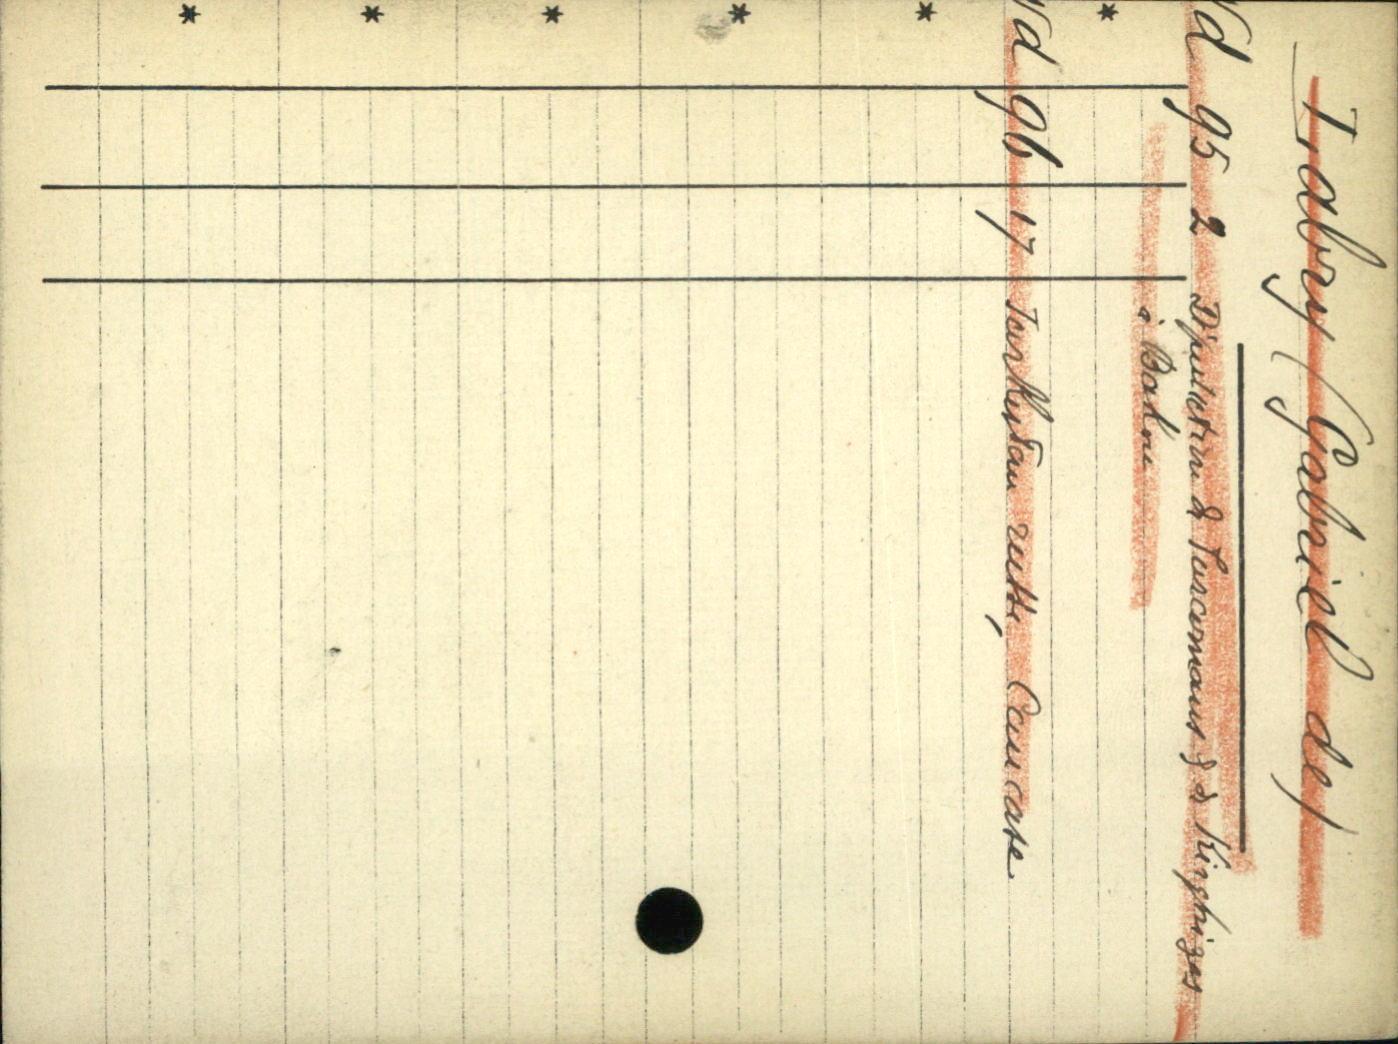 Labry (Gabriel de)
Wd 95 2 Députation de Turcomans & de Kirghizes
à Bakou
*
Wd 96 17 Turkestan russe, Caucase
*
*
*
*
*